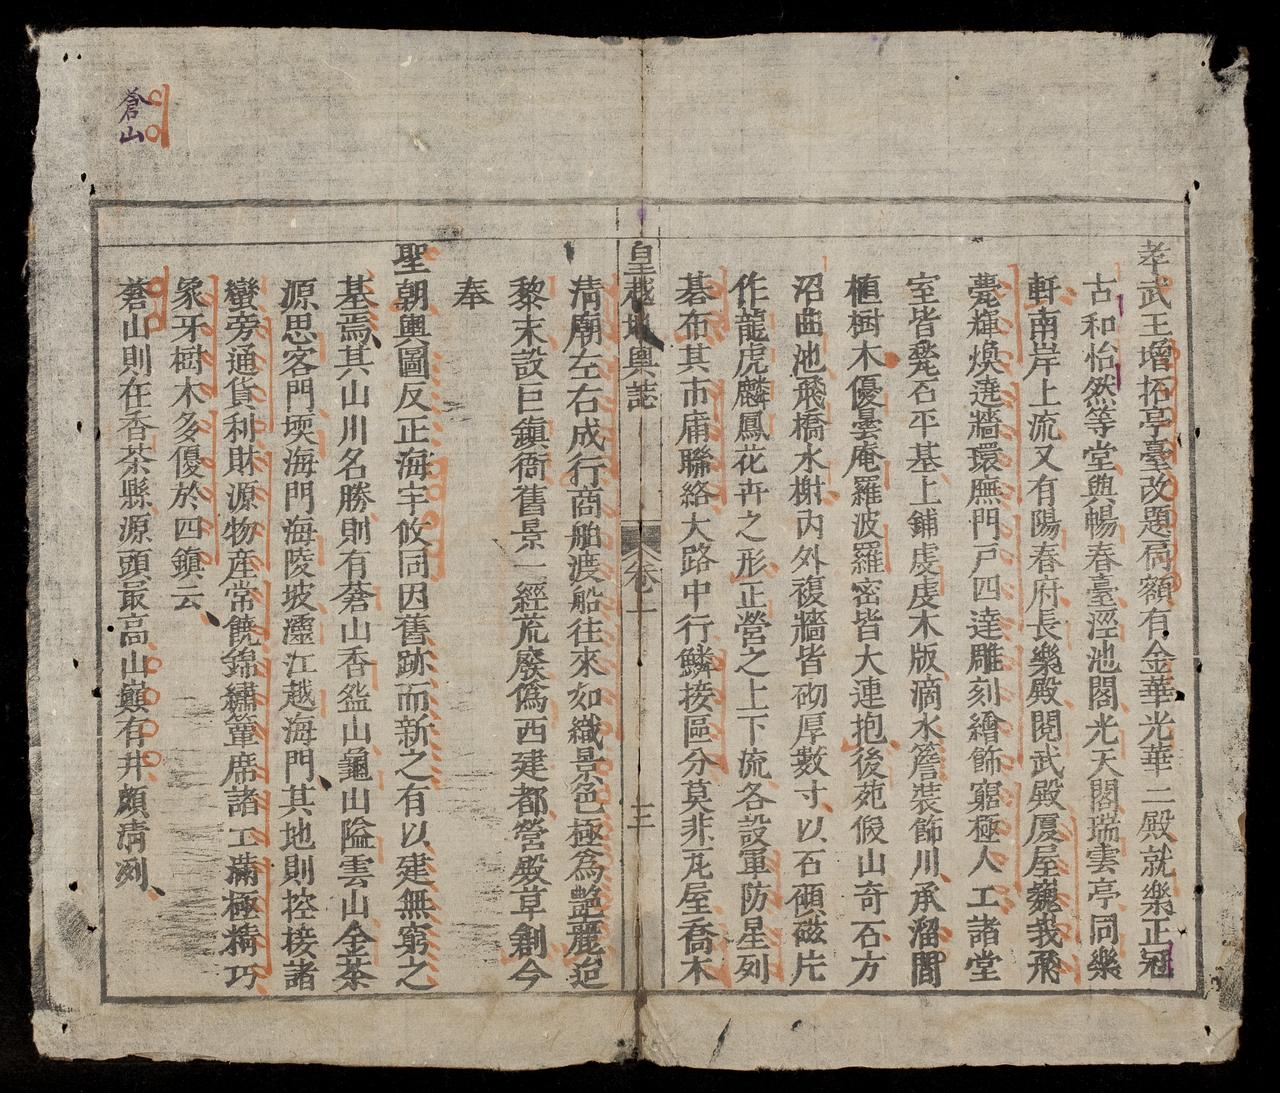 孝武王增拓亭臺改題扃額有金華光華二殿就樂正冠
古和怡然等堂與暢春臺涇池閣光天閣瑞雲亭同樂
軒南岸上流又有陽春府長樂殿閱武殿厦屋巍峩飛
甍輝煥遶牆環廡門戸四達雕刻繪飾窮極人工諸堂
室皆甃石平基上鋪虔虔木版滴水簷裝飾川承溜閣
植樹木優曇庵羅波羅密皆大連抱後苑假山奇石方
沼曲池飛橋水榭內外複牆皆砌厚數寸以石磒磁片
作龍虎麟鳳花卉之形正營之上下流各設軍防星列
碁布其市庸聯絡大路中行鱗接區分莫非瓦屋喬木
皇越地輿誌 卷一 三
清廟左右成行商舶渡船往來如織景色極爲艷麗迨
黎末設巨鎮衙舊景一經荒廢僞西建都營殿草創今
奉
聖朝輿圖反正海宇攸同因舊跡而新之有以建無窮之
基焉其山川名勝則有蒼山香盆山龜山隘雲山金茶
源思客門堧海門海陵坡㶚江越海門其地則控接諸
蠻旁通貨利財源物產常饒錦繡簟席諸工滿極精巧
象牙樹木多優於四鎮云
蒼山則在香茶縣源頭最高山巔有井頗清冽
蒼山